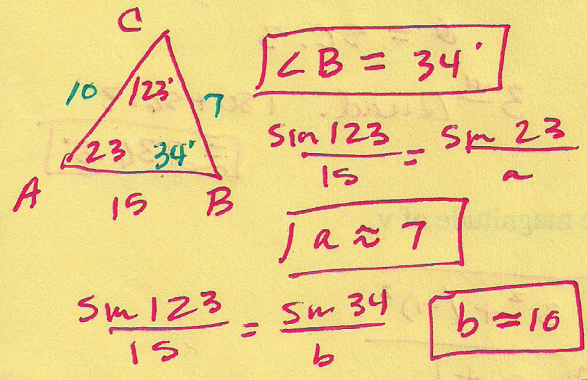 C
10 123° 7
23 34°
A 15 B
∠B = 34°
sin 123 / 15 = sin 23 / a
a ≈ 7
sin 123 / 15 = sin 34 / b
b ≈ 10